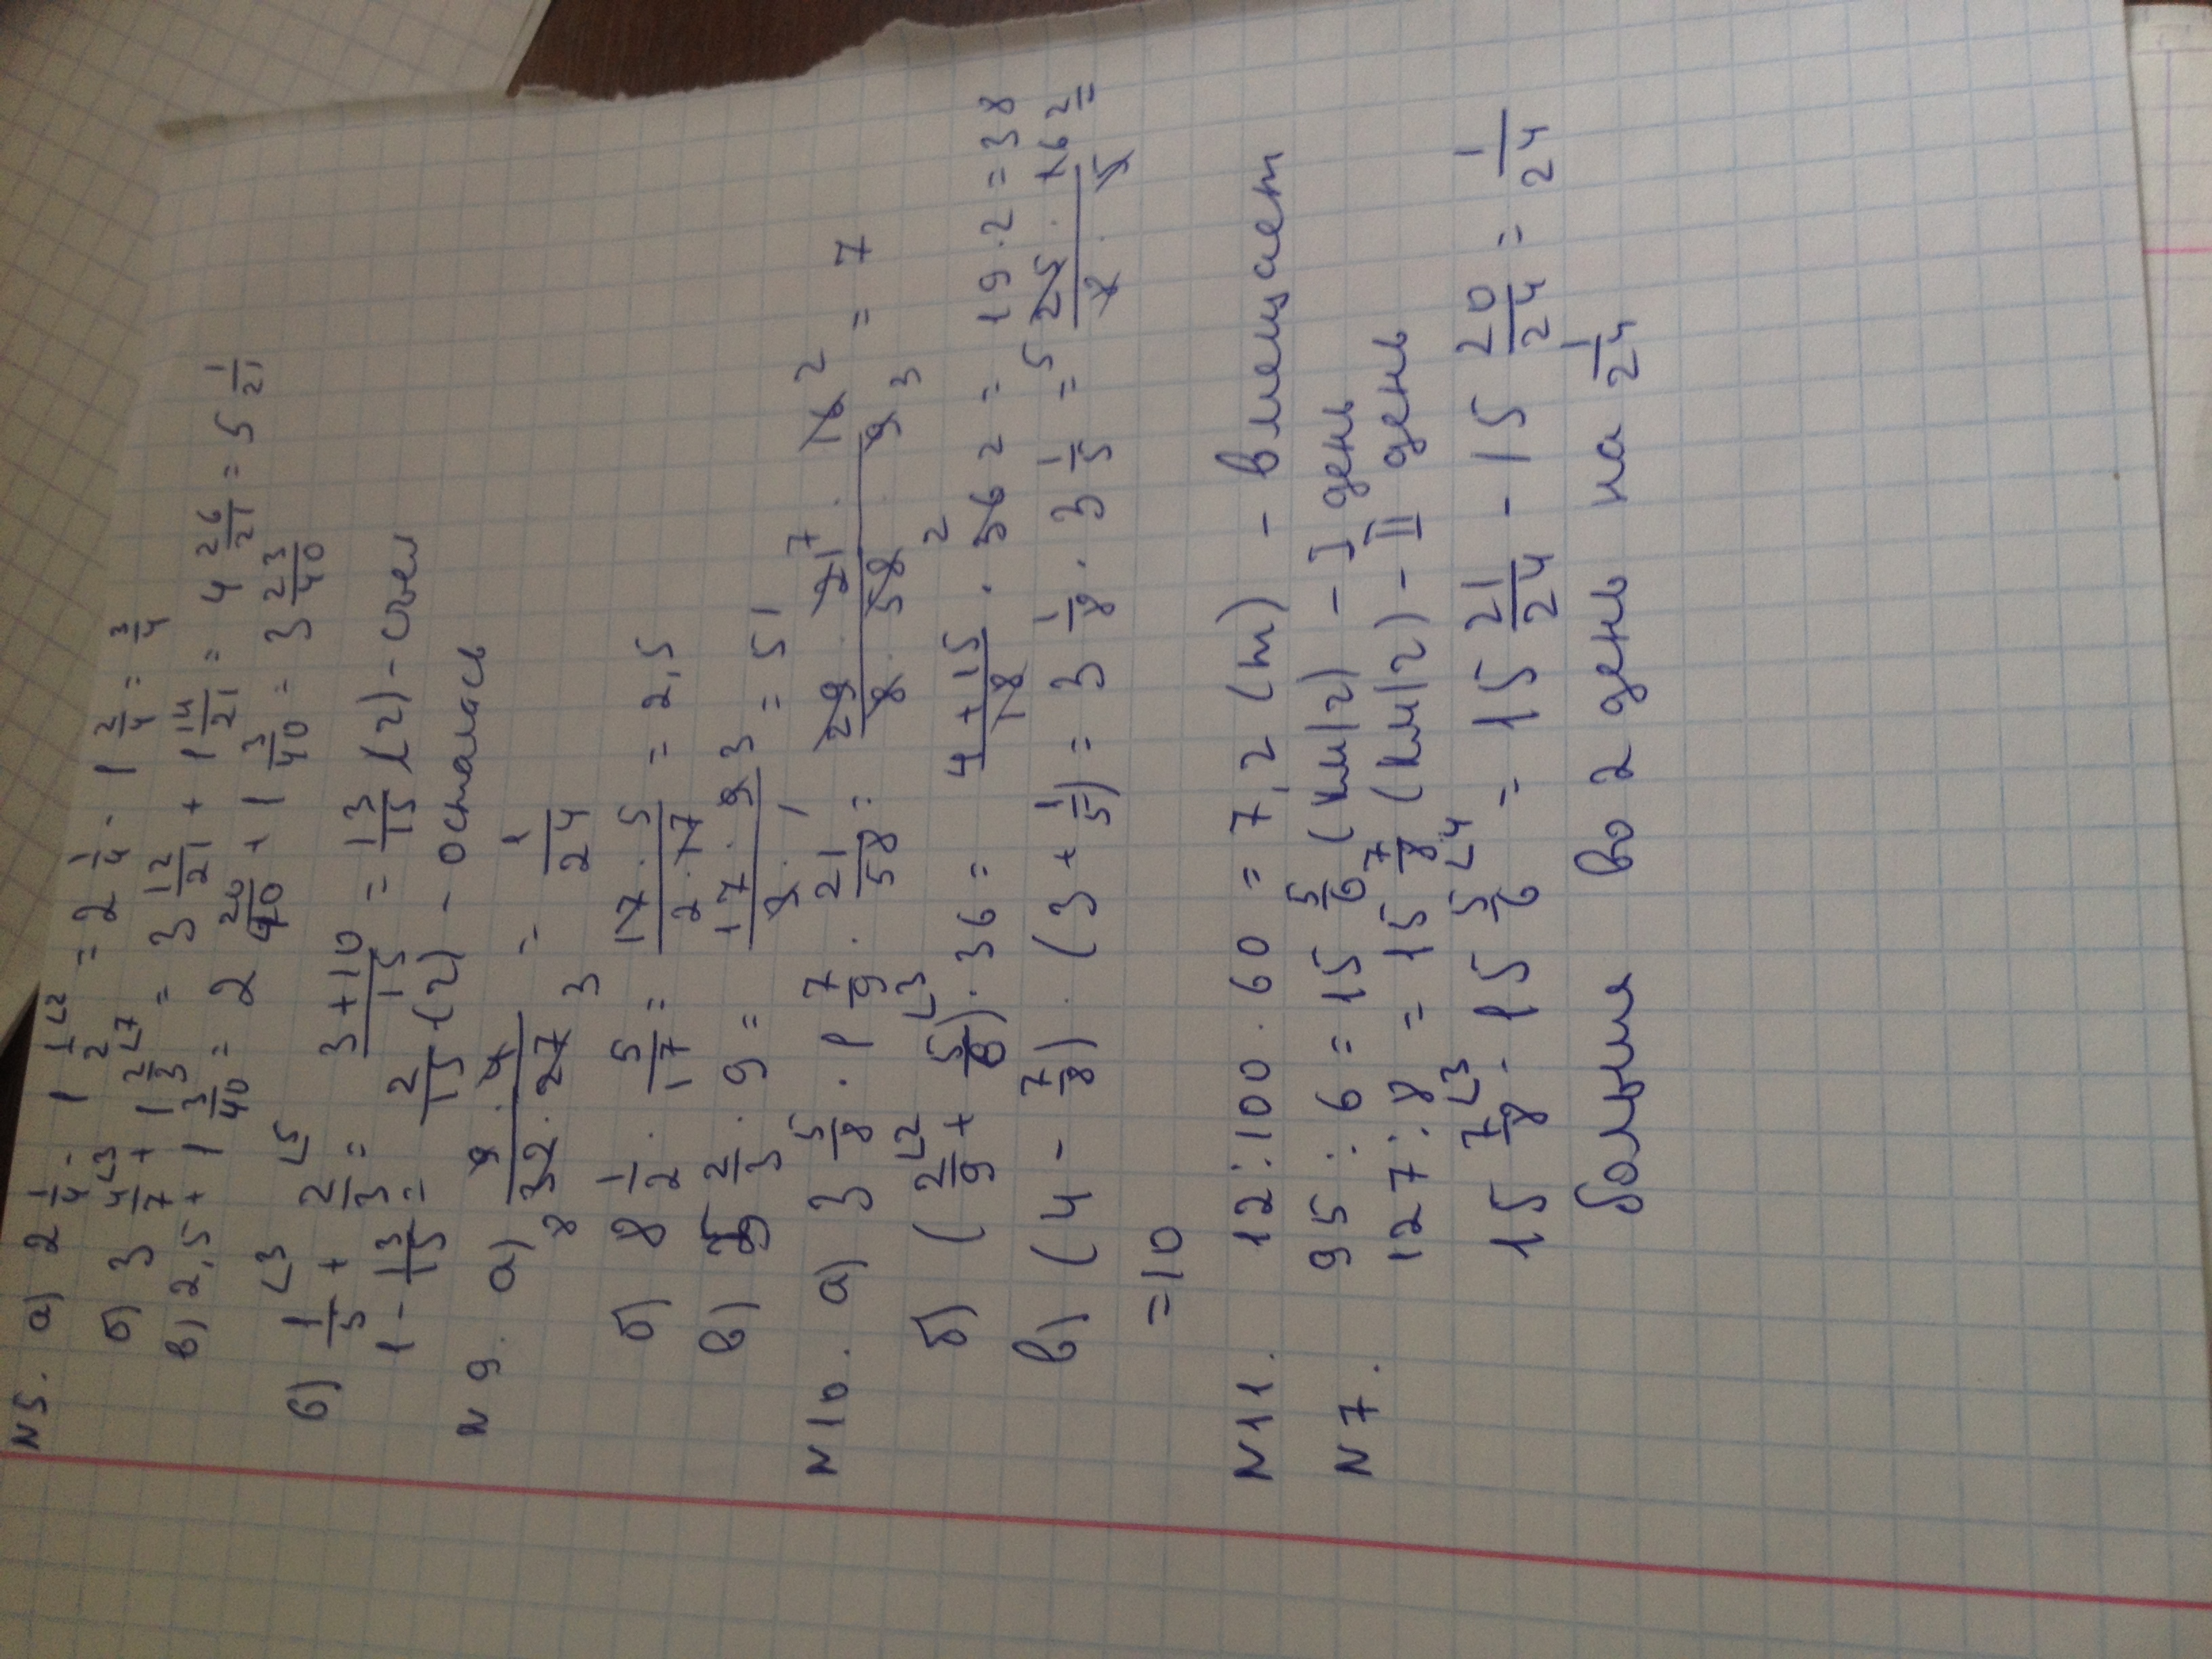 N5. а) 2 1/4 - 1 1/2 ∟2 = 2 1/4 - 1 2/4 = 3/4
б) 3 4/7 ∟3 + 1 2/3 ∟7 = 3 12/21 + 1 14/21 = 4 26/21 = 5 1/21
в) 2,5 + 1 3/40 = 2 20/40 + 1 3/40 = 3 23/40
6) 1/5 ∟3 + 2/3 ∟5 = 3+10/15 = 13/15 (г) - съел
1 - 13/15 = 2/15 (г) - осталась
N9. а) 9 · 4/32 · 27 = 1/24
8 3
б) 8 1/2 · 5/17 = 17 · 5/2 · 17 = 2,5
в) 5 2/3 · 9 = 17 · 9 3/3 · 1 = 51
N10. а) 3 5/8 · 1 7/9 · 21/58 = 29 · 21 7 · 16 2/8 · 58 2 · 9 3 = 7
б) (2/9 ∟2 + 5/6 ∟3) · 36 = 4+15/18 · 36 2 = 19 · 2 = 38
в) (4 - 7/8) · (3 + 1/5) = 3 1/8 · 3 1/5 = 5 25 · 16 2/8 · 5 =
= 10
N11. 12 : 100 · 60 = 7,2 (т) - вмещает
N7. 95 : 6 = 15 5/6 (км/г) - I день
127 : 8 = 15 7/8 (км/г) - II день
15 7/8 ∟3 - 15 5/6 ∟4 = 15 21/24 - 15 20/24 = 1/24
больше во 2 день на 1/24